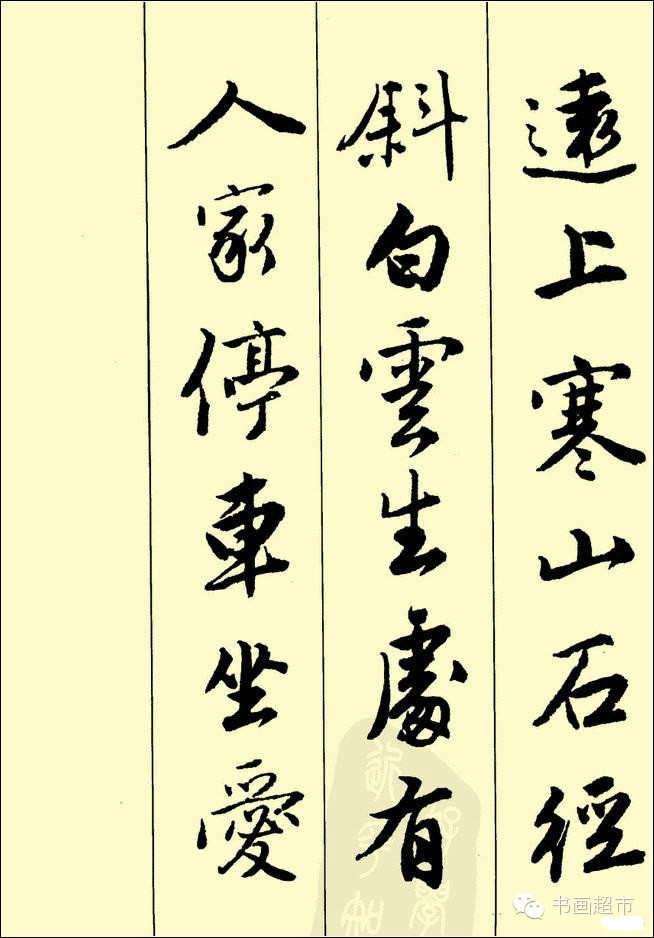 遠上寒山石徑
斜白雲生處有
人家停車坐愛
书画超市